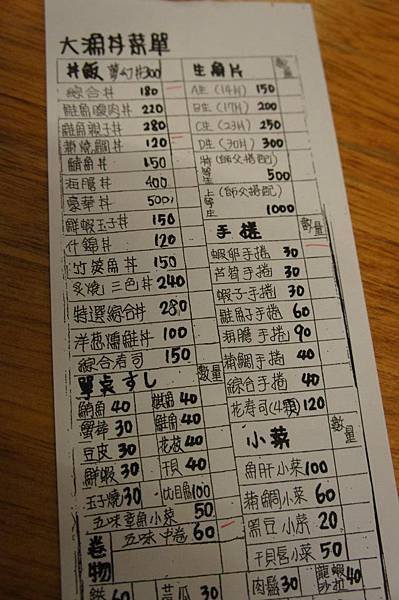 大漁丼菜單
丼飯 夢幻丼300
綜合丼 180
鮭魚腹肉丼 220
鮭魚親子丼 280
鯛丼 120
鮪魚丼 150
海膽丼 400
豪華丼 500
鮮蝦玉子丼 150
什錦丼 120
竹筴魚丼 150
炙燒三色丼 240
特選綜合丼 280
洋蔥燻雞丼 100
綜合壽司 150
生魚片 數量
A生(14片) 150
B生(17片) 200
C生(23片) 250
D生(30片) 300
特等生(師父搭配) 500
上等生(師父搭配) 1000
手捲 數量
蝦卵手捲 30
芦筍手捲 30
蝦子手捲 30
鮭魚子手捲 60
海膽手捲 90
鯛手捲 40
綜合手捲 40
花壽司(4顆) 120
單桌すし 數量
鮪魚 40
旗魚 40
蟹棒 30
鮭魚 40
豆皮 30
花枝 40
鮮蝦 30
干貝 40
玉子燒 30
比目魚 100
五味章魚小菜 50
五味中卷 60
小菜 數量
魚肝小菜 100
鯛小菜 60
黑豆小菜 20
干貝唇小菜 50
肉鬆 30
龍蝦沙拉 40
卷物
鮭 60
黃瓜 30